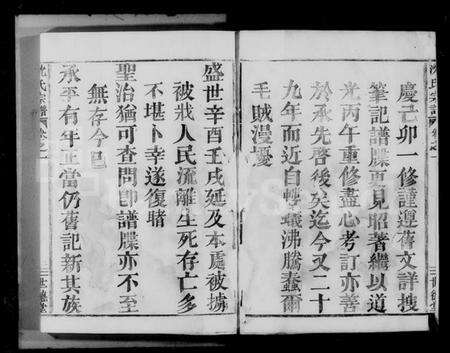 慶己卯一修謹遵舊文詳搜
筆記譜牒更見昭著繼以道
光丙午重修盡心考訂亦善
於承先啓後矣迄今又二十
九年而近自轉蟻沸騰蠢爾
毛賊漫擾
盛世辛酉壬戌延及本處被擄
被戕人民流離生死存亡多
不堪卜幸遂復睹
聖治猶可查問即譜牒亦不至
無存今已
承平有年正當仍舊記新其族
沈氏宗譜
卷之一
三世德堂